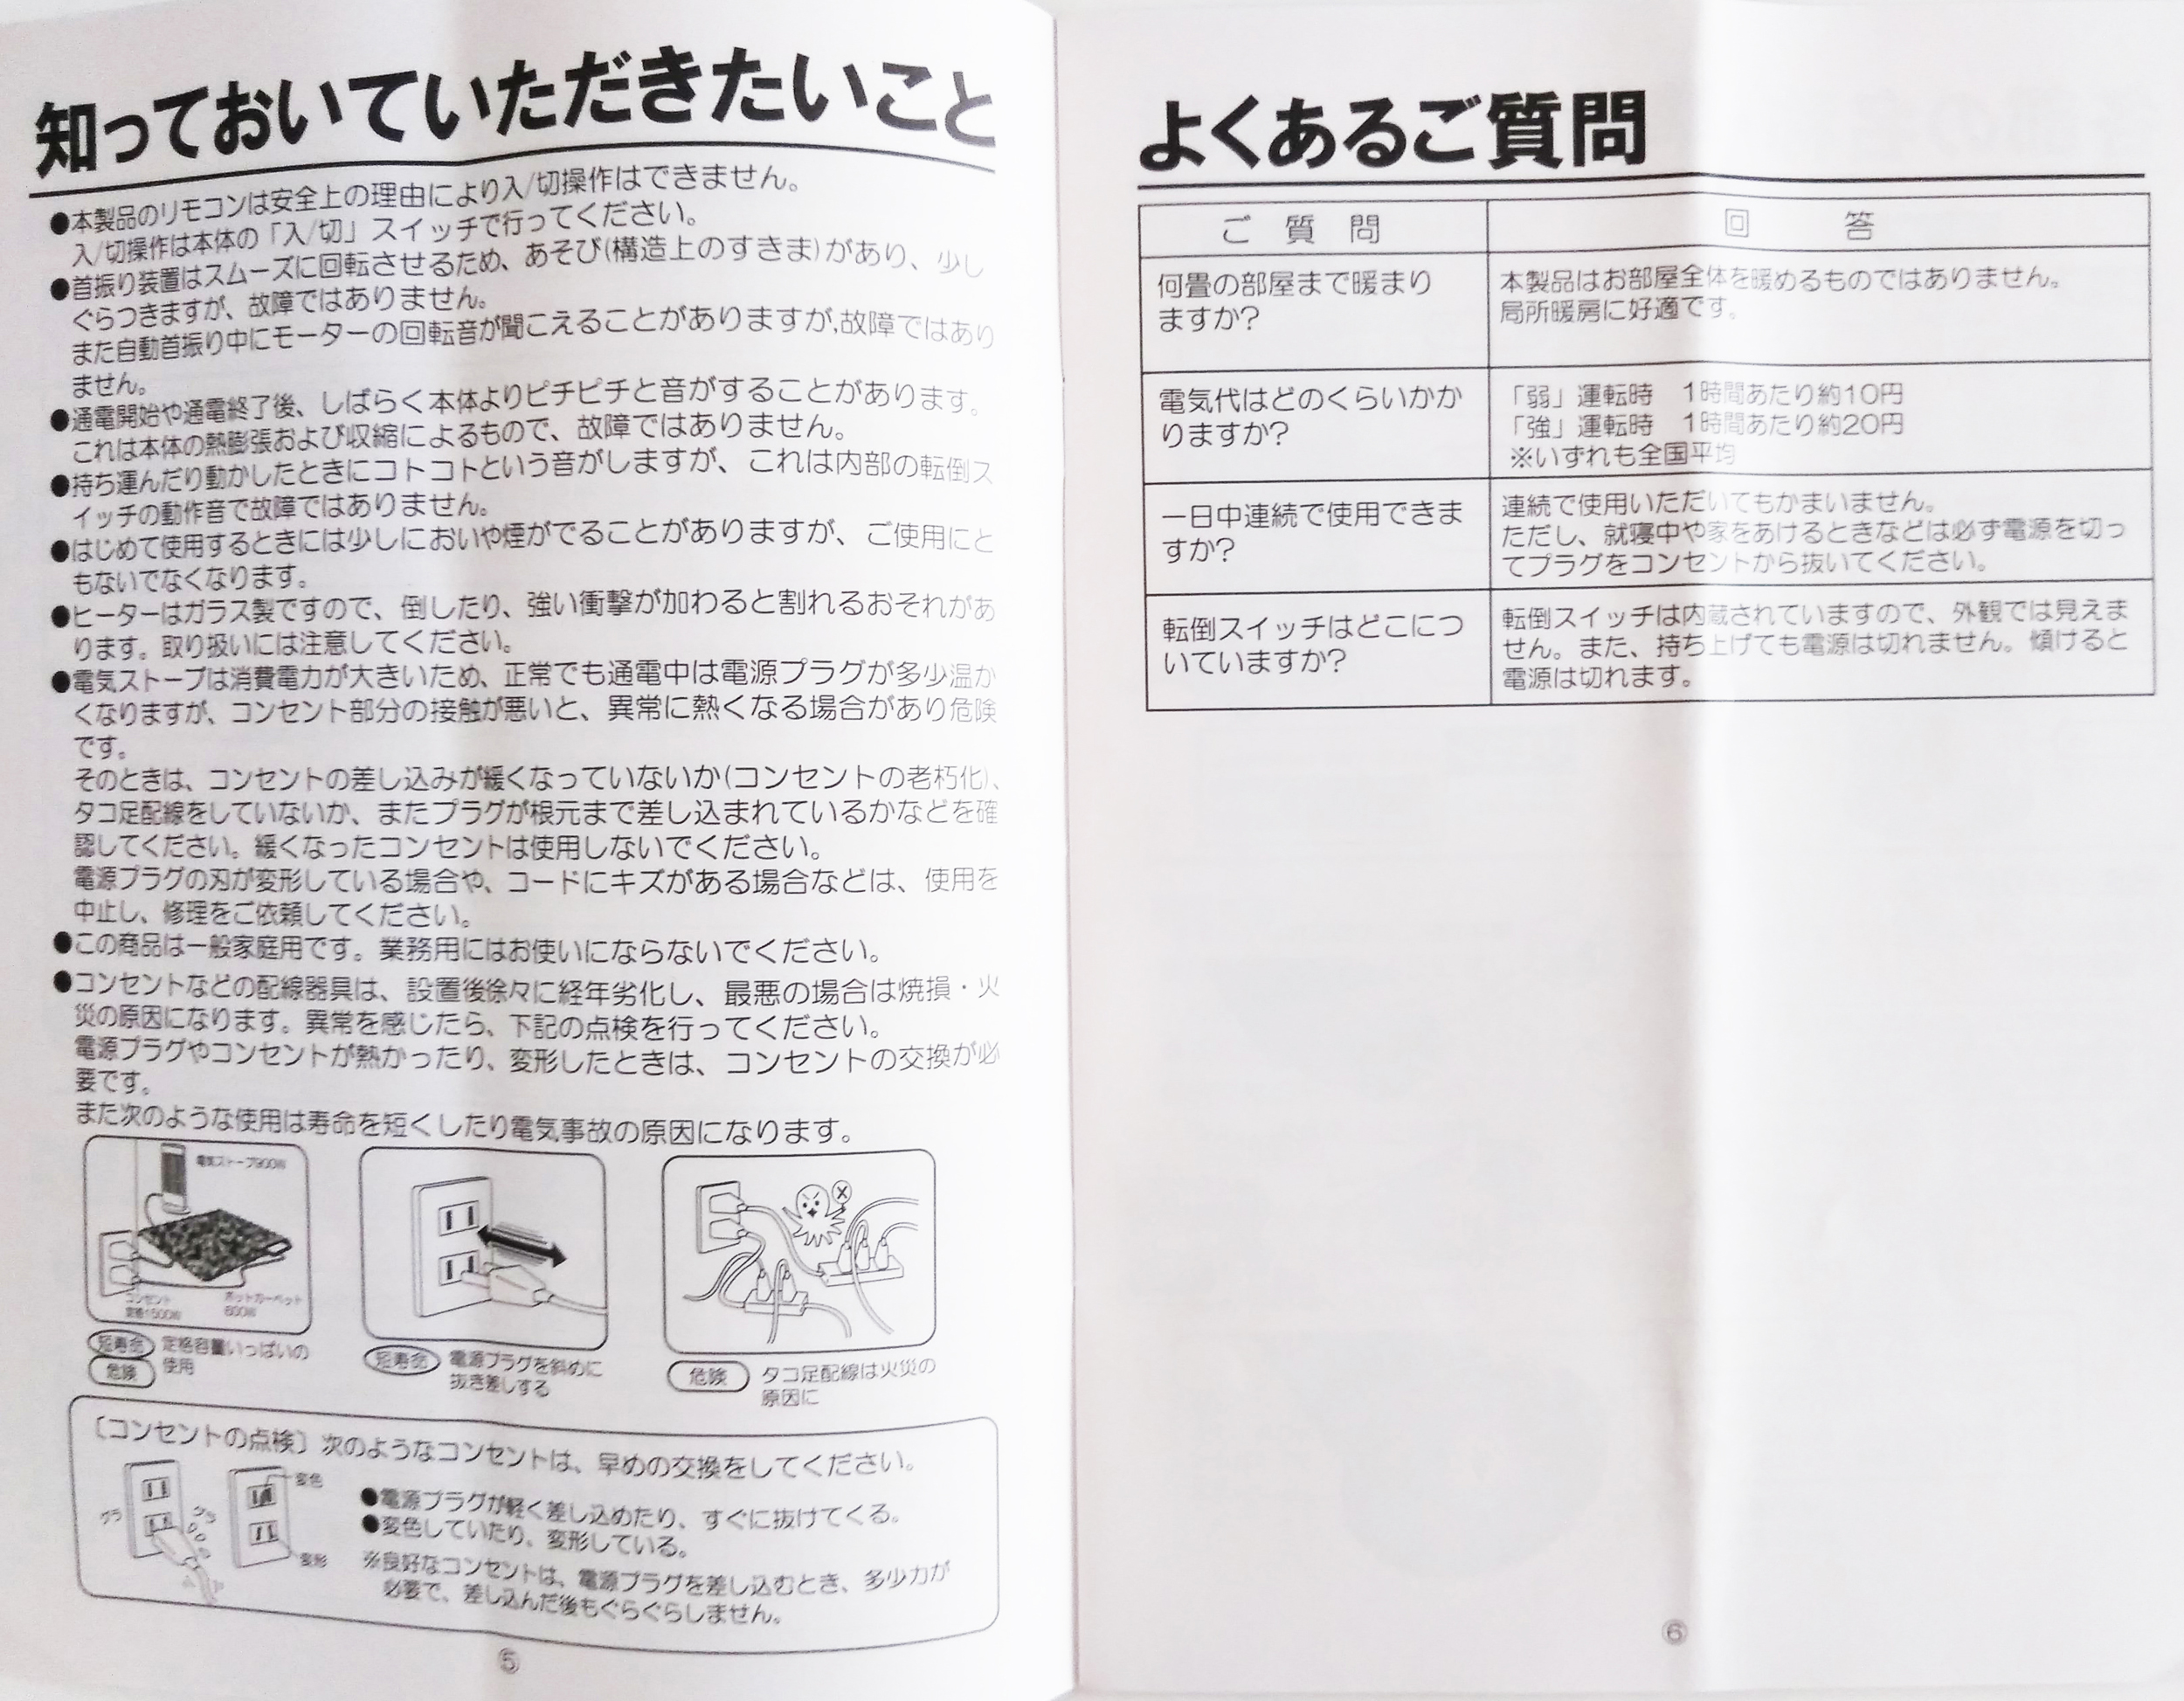 知っておいていただきたいこと
●本製品のリモコンは安全上の理由により入/切操作はできません。
入/切操作は本体の「入/切」スイッチで行ってください。
●首振り装置はスムーズに回転させるため、あそび(構造上のすきま)があり、少し
ぐらつきますが、故障ではありません。
また自動首振り中にモーターの回転音が聞こえることがありますが,故障ではあり
ません。
●通電開始や通電終了後、しばらく本体よりピチピチと音がすることがあります。
これは本体の熱膨張および収縮によるもので、故障ではありません。
●持ち運んだり動かしたときにコトコトという音がしますが、これは内部の転倒ス
イッチの動作音で故障ではありません。
●はじめて使用するときには少しにおいや煙がでることがありますが、ご使用にと
もないでなくなります。
●ヒーターはガラス製ですので、倒したり、強い衝撃が加わると割れるおそれがあ
ります。取り扱いには注意してください。
●電気ストーブは消費電力が大きいため、正常でも通電中は電源プラグが多少温か
くなりますが、コンセント部分の接触が悪いと、異常に熱くなる場合があり危険
です。
そのときは、コンセントの差し込みが緩くなっていないか(コンセントの老朽化)、
タコ足配線をしていないか、またプラグが根元まで差し込まれているかなどを確
認してください。緩くなったコンセントは使用しないでください。
電源プラグの刃が変形している場合や、コードにキズがある場合などは、使用を
中止し、修理をご依頼してください。
●この商品は一般家庭用です。業務用にはお使いにならないでください。
●コンセントなどの配線器具は、設置後徐々に経年劣化し、最悪の場合は焼損・火
災の原因になります。異常を感じたら、下記の点検を行ってください。
電源プラグやコンセントが熱かったり、変形したときは、コンセントの交換が必
要です。
また次のような使用は寿命を短くしたり電気事故の原因になります。
電気ストーブ900W
コンセント
定格1500W
ホットカーペット
600W
短寿命
危険
定格容量いっぱいの
使用
短寿命
電源プラグを斜めに
抜き差しする
危険
タコ足配線は火災の
原因に
〔コンセントの点検〕次のようなコンセントは、早めの交換をしてください。
グラ
グラ
変色
変形
●電源プラグが軽く差し込めたり、すぐに抜けてくる。
●変色していたり、変形している。
※良好なコンセントは、電源プラグを差し込むとき、多少力が
必要で、差し込んだ後もぐらぐらしません。
⑤
よくあるご質問
ご 質 問
回 答
何畳の部屋まで暖まり
ますか?
本製品はお部屋全体を暖めるものではありません。
局所暖房に好適です。
電気代はどのくらいかか
りますか?
「弱」運転時 1時間あたり約10円
「強」運転時 1時間あたり約20円
※いずれも全国平均
一日中連続で使用できま
すか?
連続で使用いただいてもかまいません。
ただし、就寝中や家をあけるときなどは必ず電源を切っ
てプラグをコンセントから抜いてください。
転倒スイッチはどこにつ
いていますか?
転倒スイッチは内蔵されていますので、外観では見えま
せん。また、持ち上げても電源は切れません。傾けると
電源は切れます。
⑥